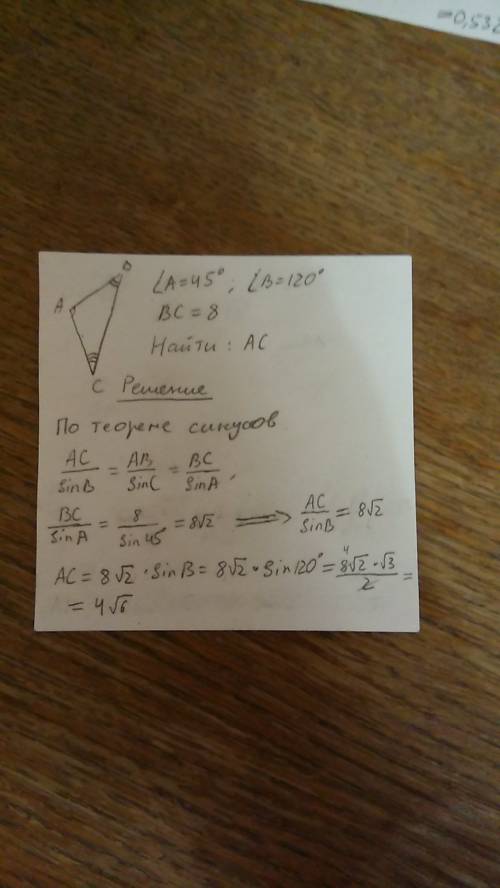 =0,532
B
A
C
∠A=45°; ∠B=120°
BC = 8
Найти: AC
Решение
По теореме синусов
AC/sinB = AB/SinC = BC/SinA,
BC/SinA = 8/Sin45° = 8√2 ⟹ AC/SinB = 8√2
AC = 8√2 · SinB = 8√2 · Sin120° = 8√2·√3/2 =
4
= 4√6